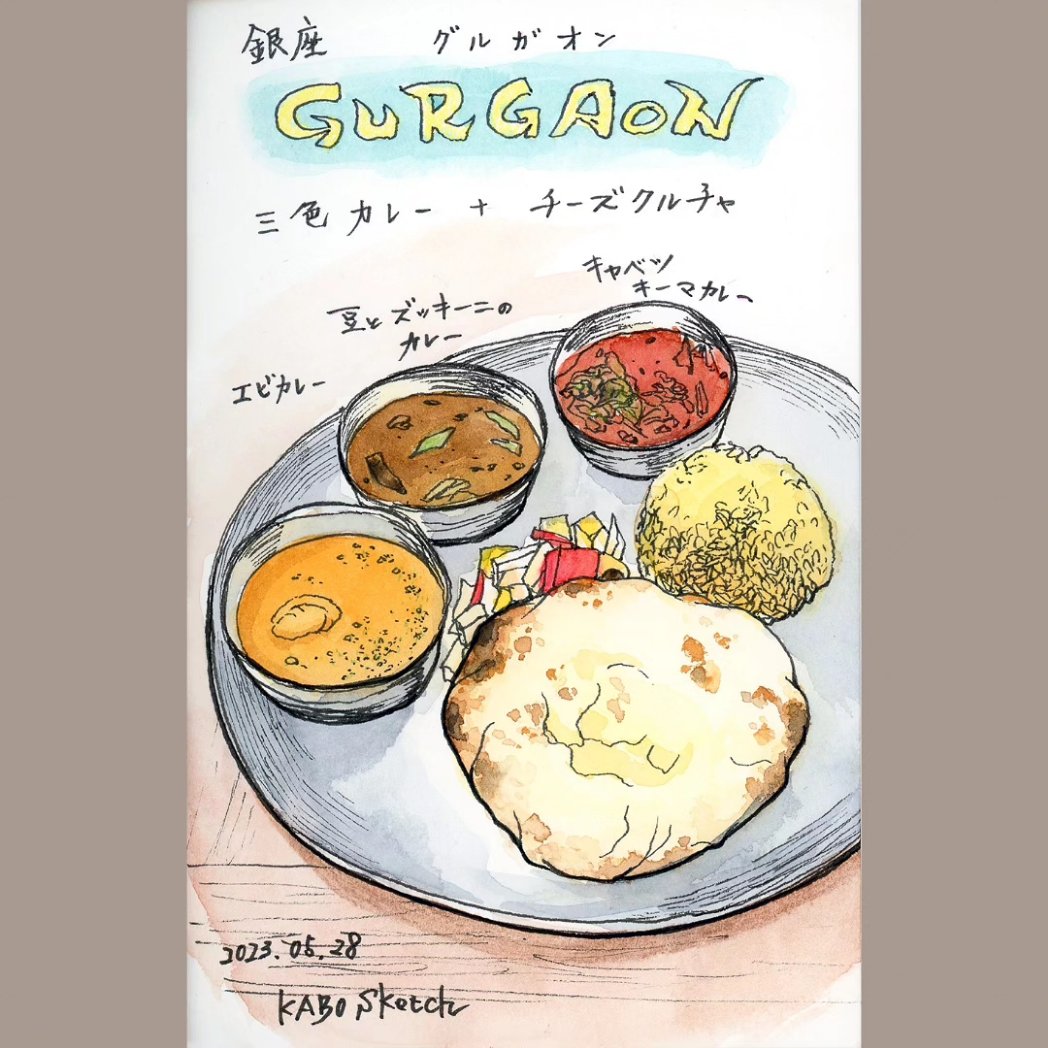 銀座 グルガオン
GURGAON
三色カレー + チーズクルチャ
キャベツ
キーマカレー
豆とズッキーニの
カレー
エビカレー
2023.05.28
KABO Sketch